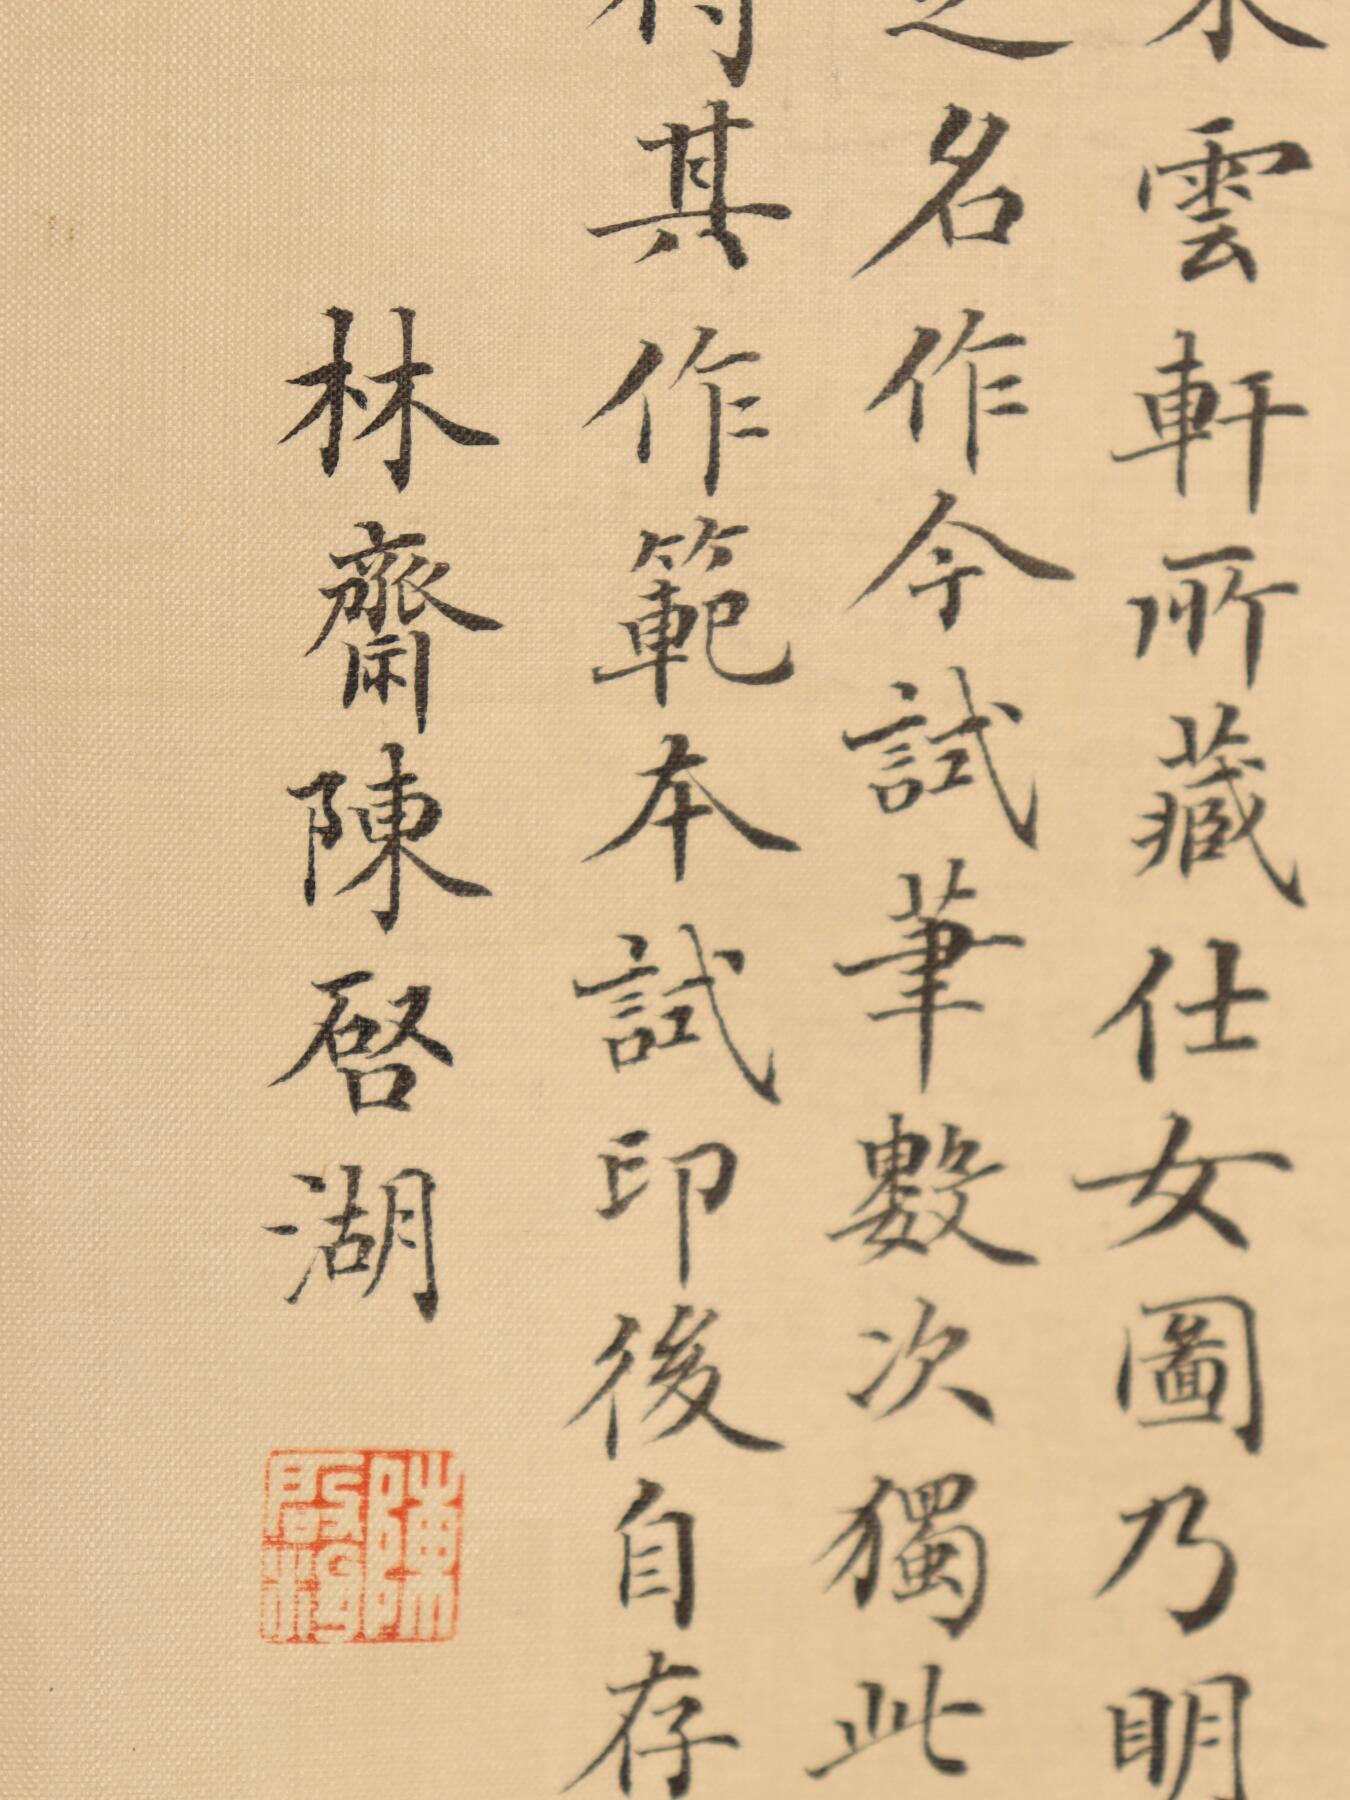 雲軒所藏仕女圖乃明
之名作今試筆數次獨此
其作範本試印後自存
林齋陳啓湖